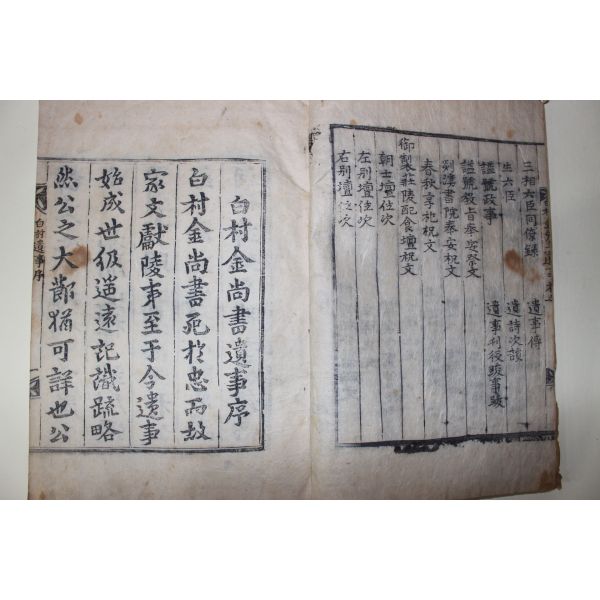 三相六臣同傳錄 遺事傳
生六臣 遺詩次韻
諡號政事 遺事刊後跋事跋
諡號教旨奉安祭文
書院奉安祝文
春秋享祀祝文
御製莊陵配食壇祝文
朝士壇位次
左別壇位次
右別壇位次
白村金尚書遺事序
白村金尚書死於忠而故
家文獻陵夷至于今遺事
始成世伋逖遠記識疏略
然公之大節猶可詳也公
白村遺事序